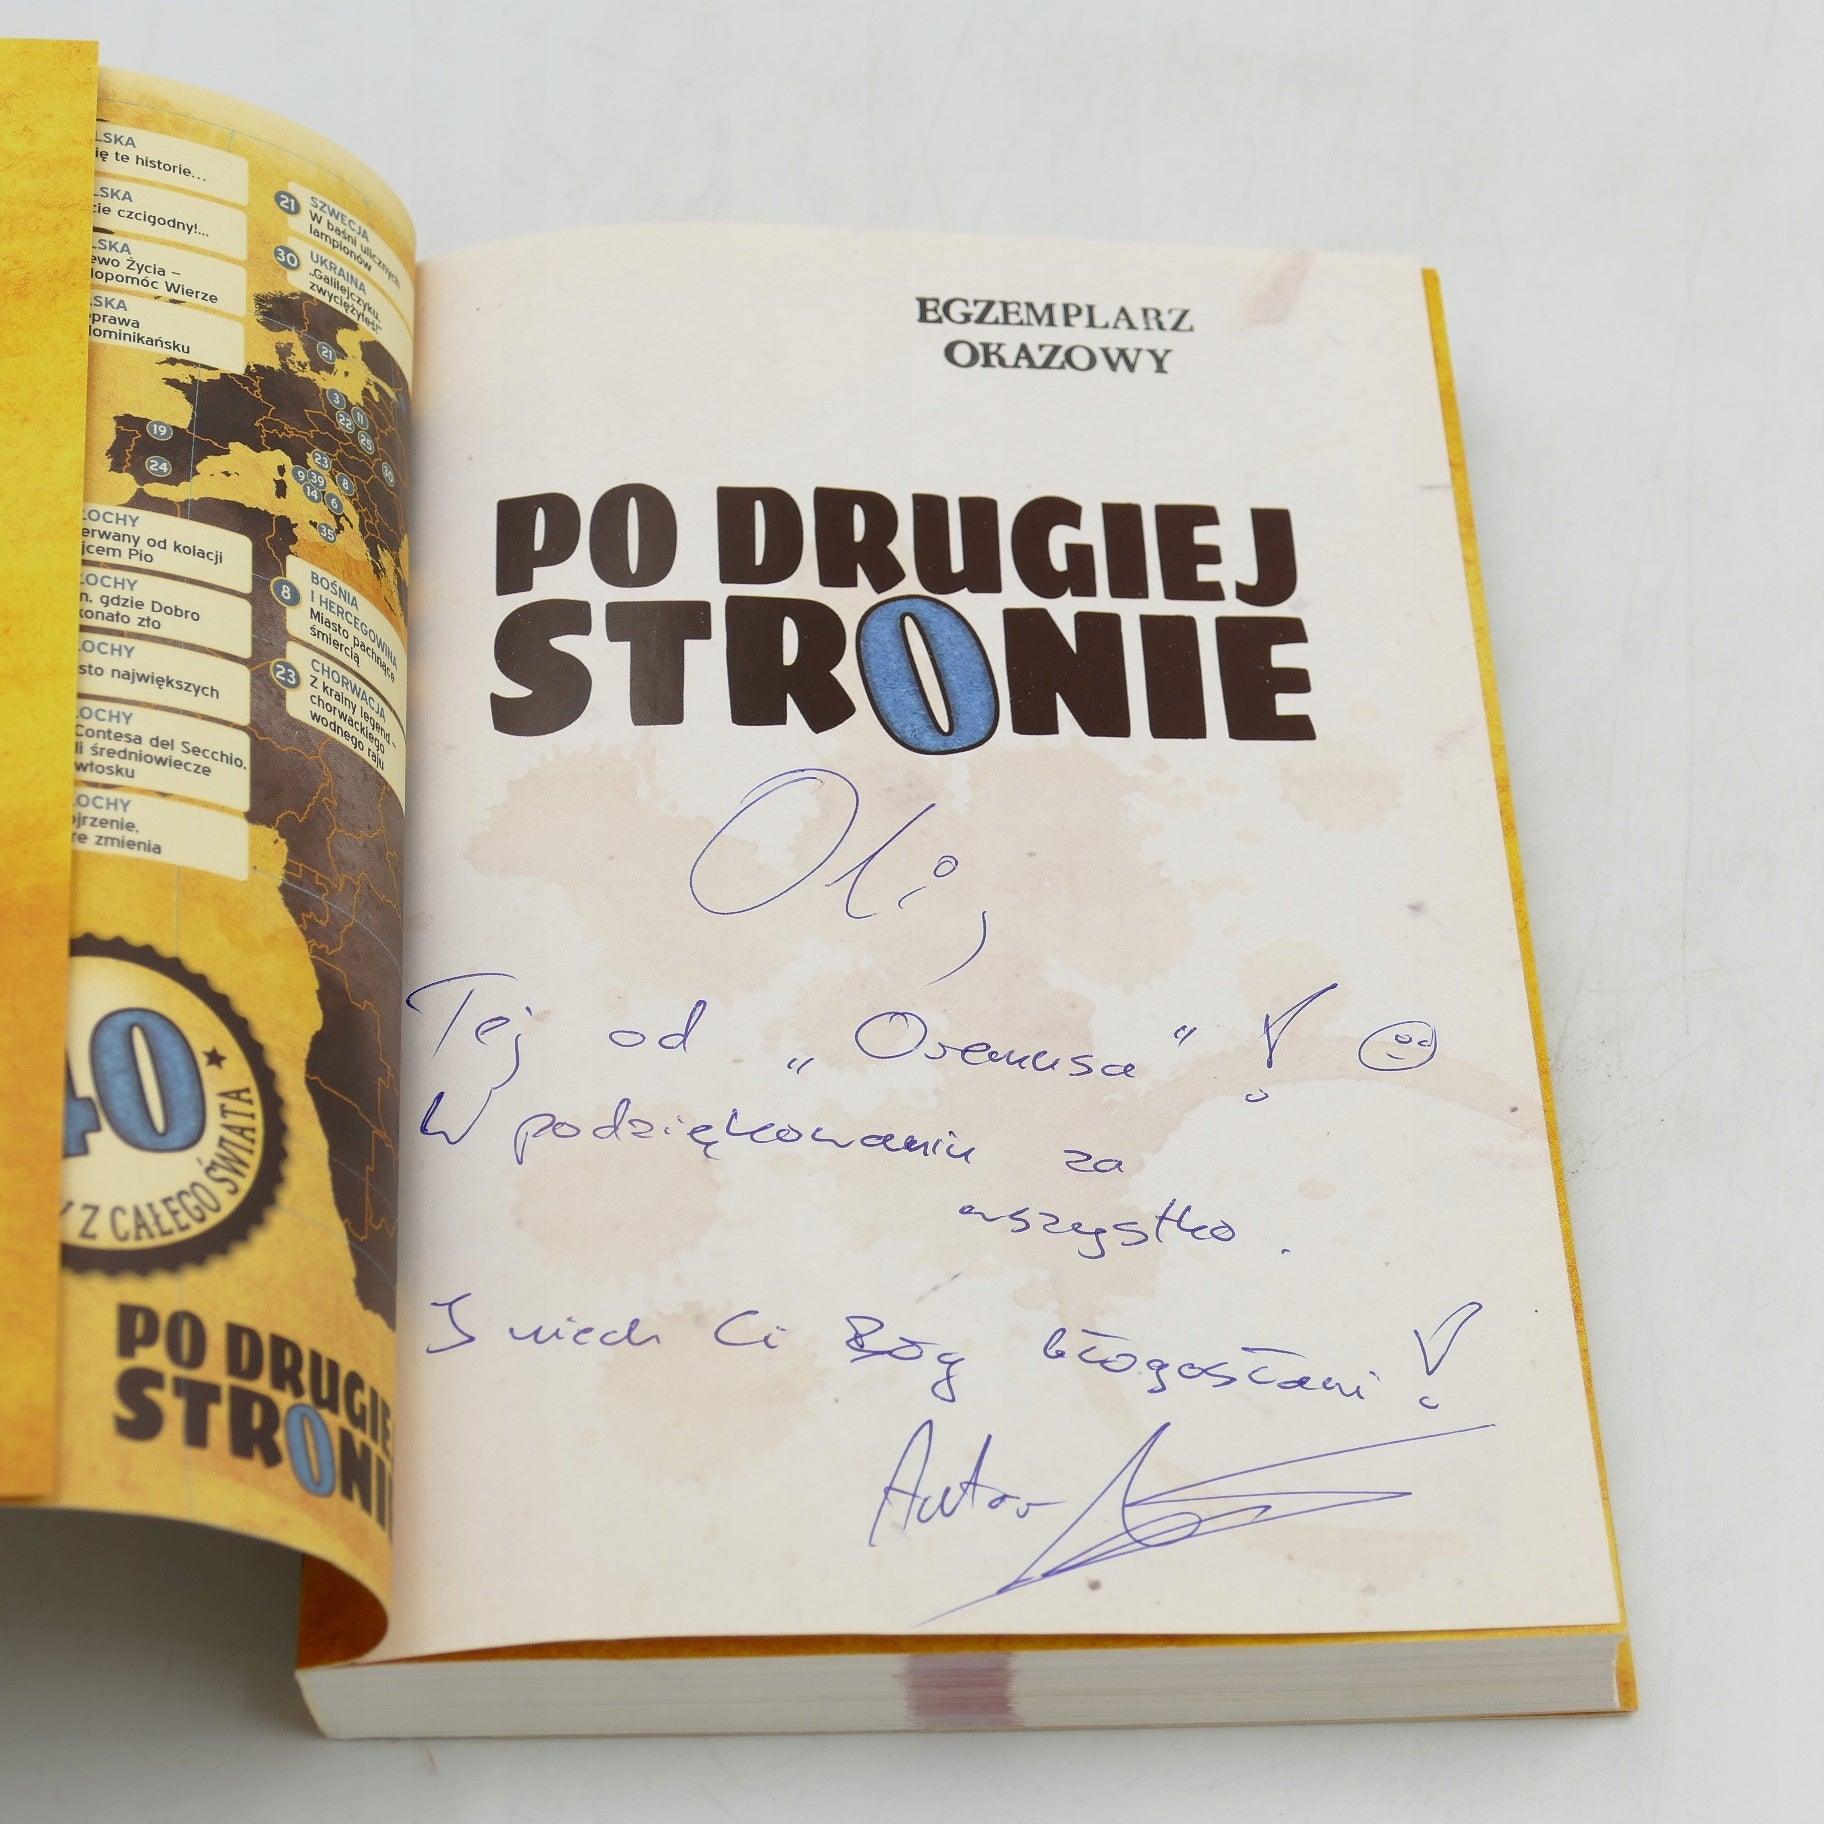 LSKA
ię te historie...
LSKA
cie czcigodny!...
LSKA
ewo Życia –
dopomóc Wierze
LSKA
prawa
dominikańsku
21 SZWECJA
W baśni ulicznych
lampionów
30 UKRAINA
„Galilejczyku,
zwyciężyłeś!"
21
3
11
22
25
30
19
24
23
9
39
8
14
6
35
ŁOCHY
erwany od kolacji
jcem Pio
ŁOCHY
n. gdzie Dobro
konało zło
ŁOCHY
sto największych
ŁOCHY
Contesa del Secchio,
li średniowiecze
włosku
ŁOCHY
ojrzenie,
re zmienia
8 BOŚNIA
I HERCEGOWINA
Miasto pachnące
śmiercią
23 CHORWACJA
Z krainy legend –
chorwackiego
wodnego raju
40
Z CAŁEGO ŚWIATA
PO DRUGIE
STRONI
EGZEMPLARZ
OKAZOWY
PO DRUGIEJ
STRONIE
Oli,
Tej od „Oremusa"!
W podziękowaniu za
wszystko.
I niech Ci Bóg błogosławi!
Autor